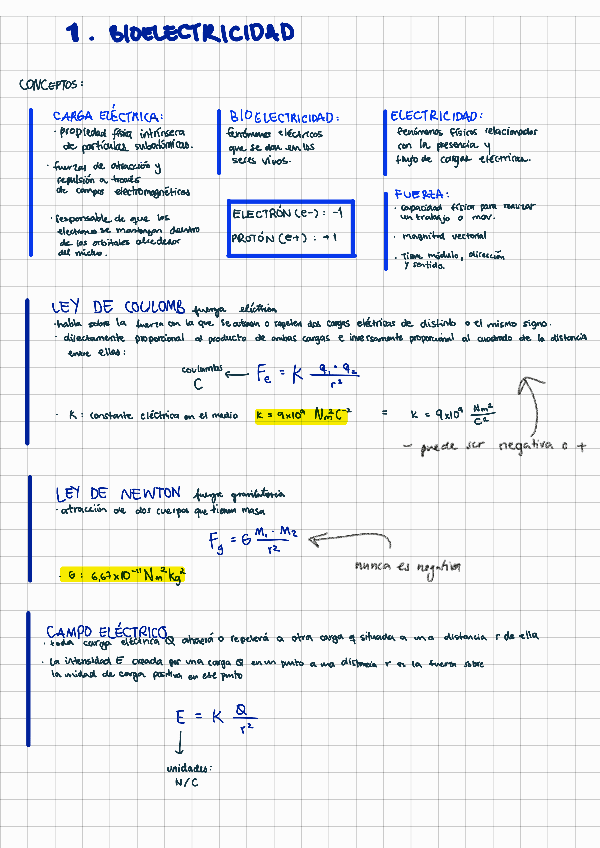 1. BIOELECTRICIDAD
CONCEPTOS:
CARGA ELÉCTRICA:
· propiedad física intrínseca
de partículas subatómicas.
· fuerzas de atracción y
repulsión a través
de campos electromagnéticos
· responsable de que los
electrones se mantengan dentro
de los orbitales alrededor
del núcleo.
BIOELECTRICIDAD:
fenómenos eléctricos
que se dan en los
seres vivos.
ELECTRÓN (e-) : -1
PROTÓN (e+) : +1
ELECTRICIDAD:
Fenómenos físicos relacionados
con la presencia y
flujo de cargas eléctricas.
FUERZA:
· capacidad física para realizar
un trabajo o mov.
· magnitud vectorial
· Tiene módulo, dirección
y sentido.
LEY DE COULOMB fuerza eléctrica
· habla sobre la fuerza con la que se atraen o repelen dos cargas eléctricas de distinto o el mismo signo.
· directamente proporcional al producto de ambas cargas e inversamente proporcional al cuadrado de la distancia
entre ellas:
coulombs
C ← Fe = K q1 · q2 / r²
· K: constante eléctrica en el medio K = 9x10⁹ Nm²C⁻² = K = 9x10⁹ Nm²/C²
- puede ser negativa o +
LEY DE NEWTON fuerza gravitatoria
· atracción de dos cuerpos que tienen masa
Fg = G M1 · M2 / r²
nunca es negativa
· G: 6,67x10⁻¹¹ Nm²kg²
CAMPO ELÉCTRICO
· toda carga eléctrica Q atraerá o repelerá a otra carga q situada a una distancia r de ella
· La intensidad E creada por una carga Q en un punto a una distancia r es la fuerza sobre
la unidad de carga positiva en ese punto
E = K Q / r²
unidades:
N/C